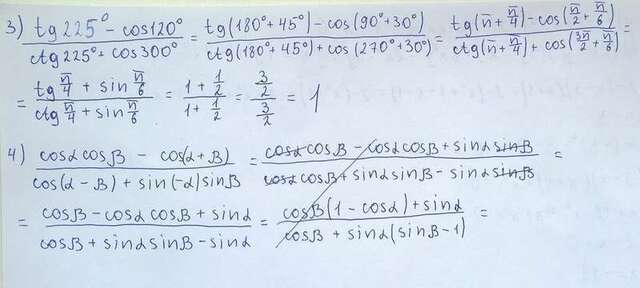 3) (tg225° - cos120°)/(ctg225° + cos300°) = (tg(180°+45°) - cos(90°+30°))/(ctg(180°+45°) + cos(270°+30°)) = (tg(π+π/4) - cos(π/2+π/6))/(ctg(π+π/4) + cos(3π/2+π/6)) =
= (tg π/4 + sin π/6)/(ctg π/4 + sin π/6) = (1 + 1/2)/(1 + 1/2) = (3/2)/(3/2) = 1
4) (cosα cosβ - cos(α+β))/(cos(α-β) + sin(-α)sinβ) = (cosα cosβ - cosα cosβ + sinα sinβ)/(cosα cosβ + sinα sinβ - sinα sinβ) =
= (cosβ - cosα cosβ + sinα)/(cosβ + sinα sinβ - sinα) = (cosβ(1 - cosα) + sinα)/(cosβ + sinα(sinβ - 1)) =